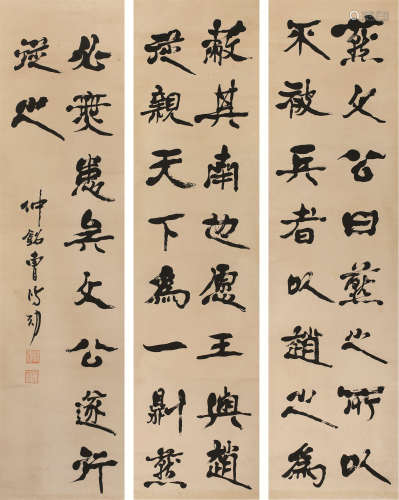 燕文公曰燕之所以
不被兵者以趙之為
蔽其南也愿王與趙
從親天下為一則燕
必無患矣文公遂行
從之
仲銘曹鴻勛